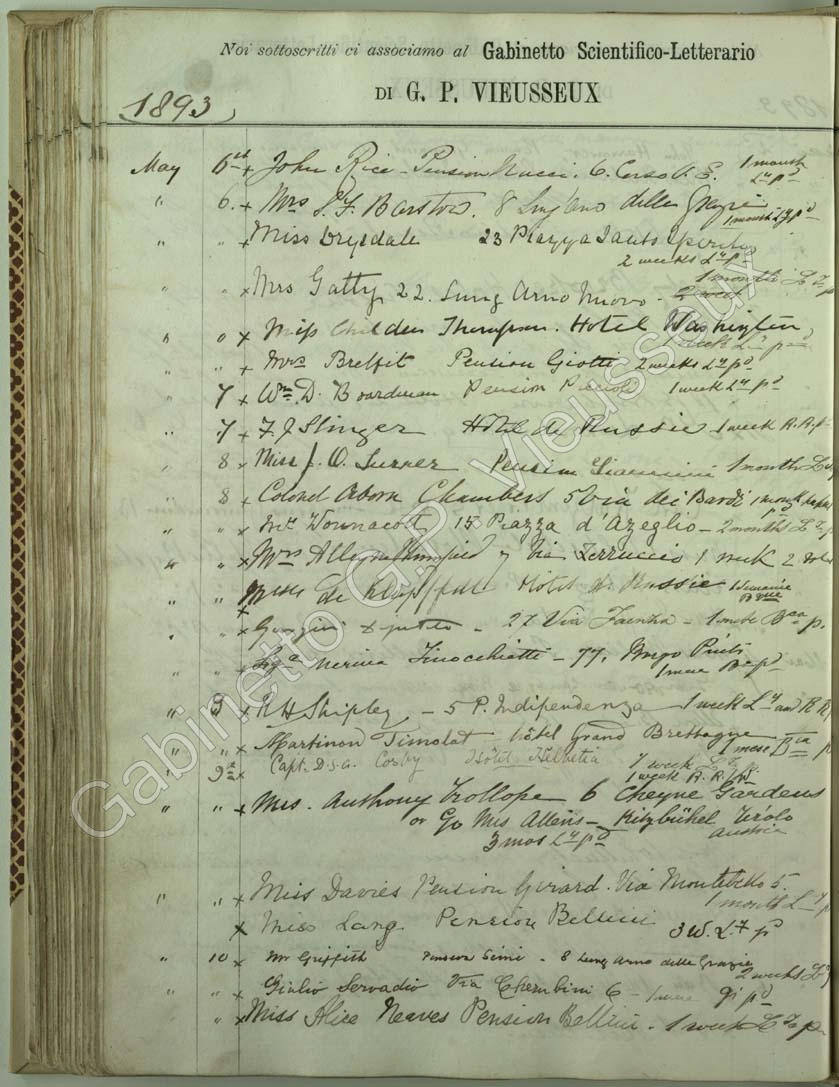 Noi sottoscritti ci associamo al Gabinetto Scientifico-Letterario
DI G. P. VIEUSSEUX
1893
May 6th x John Rice - Pension Nucci. 6. Corso V. E. 1 month
Ly pd
" 6. x Mrs Barstow. 8 Lung'arno delle Grazie
1 month Ly pd
" " x Miss Drysdale 23 Piazza Santo Spirito
2 weeks Ly pd
" " x Mrs Gatty 22. Lung Arno Nuovo - 1 month
" " x Miss Childers Thompson. Hotel Washington
week Ly pd
" " x Mrs Pension Giotti 2 weeks Ly pd
" 7 x Wm. D. Boardman Pension Piccioli 1 week Ly pd
" 7 x F. J Slinger Hôtel de Russie 1 week R.R. pd
" 8 x Miss J. O. Pension Giannini 1 month
" 8 x Colonel Chambers 5 Via dei Bardi 1 month
" " x Wonnacott, 15 Piazza d'Azeglio - 2 months
" " x Mrs 7 Via Ferruccio 1 week 2 vols
" " x Melle de Hôtel de Russie 1 semaine
" " x - 27 Via Faenza - 1 mese Bca p.
" " x Sigra Nerina Finocchietti - 77. Borgo Pinti
1 mese Bca pd
" 9 x R H Shipley - 5 P. Indipendenza 1 week Ly and R R
" " x Martinon Timolat hôtel Grand Brettagne
1 mese Bca pd
" 9th x Capt. D.S.G. Cosby Hôtel Helvetia 1 week
1 week R.R.
" " x Mrs. Anthony Trollope 6 Cheyne Gardens
or c/o Mrs Allens - Kitzbühel Tirolo
3 mos Ly pd Austria
" " x Miss Davies Pension Girard. Via Montebello 5.
1 month Ly p
x Miss Lang Pension Bellini 3 W. Ly pd
" 10 x Mr Griffith Pension Simi - 8 Lung Arno delle Grazie
2 weeks
" " x Giulio Servadio Via Cherubini 6 - 1 mese pd
" x Miss Alice Neaves Pension Bellini - 1 week
Gabinetto G.P. Vieusseux